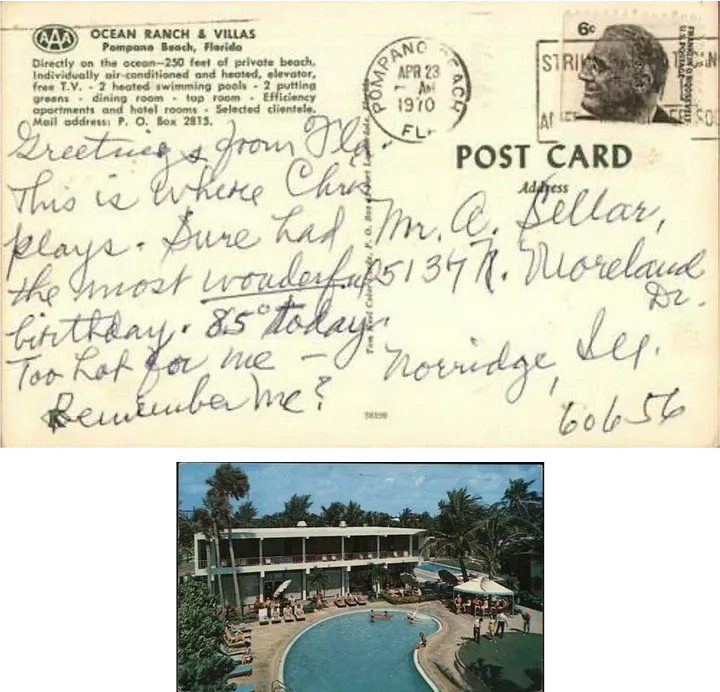 AAA
OCEAN RANCH & VILLAS
Pompano Beach, Florida
Directly on the ocean—250 feet of private beach.
Individually air-conditioned and heated, elevator,
free T.V. - 2 heated swimming pools - 2 putting
greens - dining room - tap room - Efficiency
apartments and hotel rooms - Selected clientele.
Mail address: P. O. Box 2815.
POMPANO BEACH
APR 23
AM
1970
FLA
6c
FRANKLIN D. ROOSEVELT
U.S. POSTAGE
POST CARD
Address
Greetings from Fla.
This is where Chris
plays. Sure had
the most wonderful
birthday. 85° today.
Too hot for me —
Remember Me?
Mr. A. Sellar,
5137 N. Moreland
Dr.
Norridge, Ill.
60656